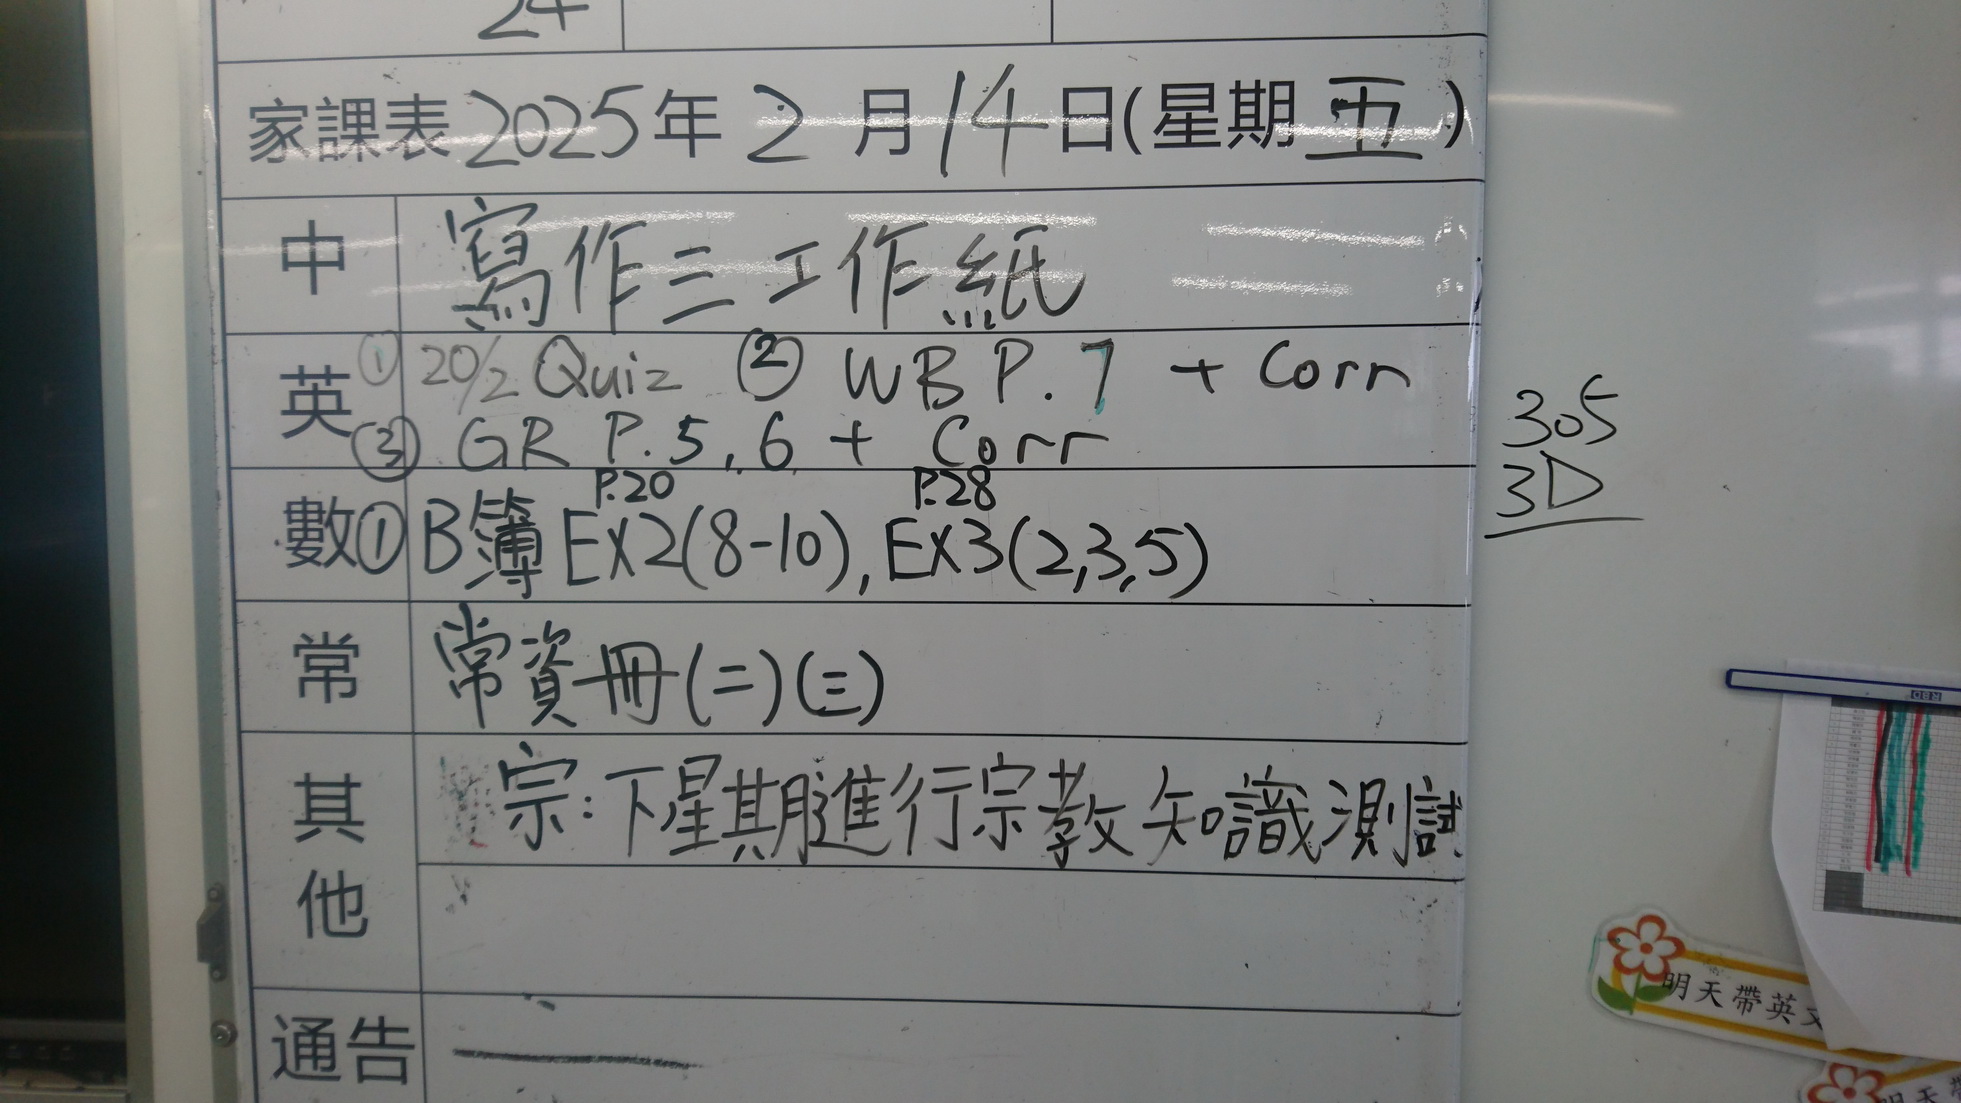 24
家課表 2025年 2 月 14 日(星期 五 )
中 寫作三工作紙
英 ① 20/2 Quiz ② WB P.7 + Corr
③ GR P.5,6 + Corr
P.20 P.28
數 ① B簿 EX2(8-10), EX3(2,3,5)
常 常資冊(二)(三)
其他 宗:下星期進行宗教知識測試
通告 —
305
3D
明天帶英文
明天帶